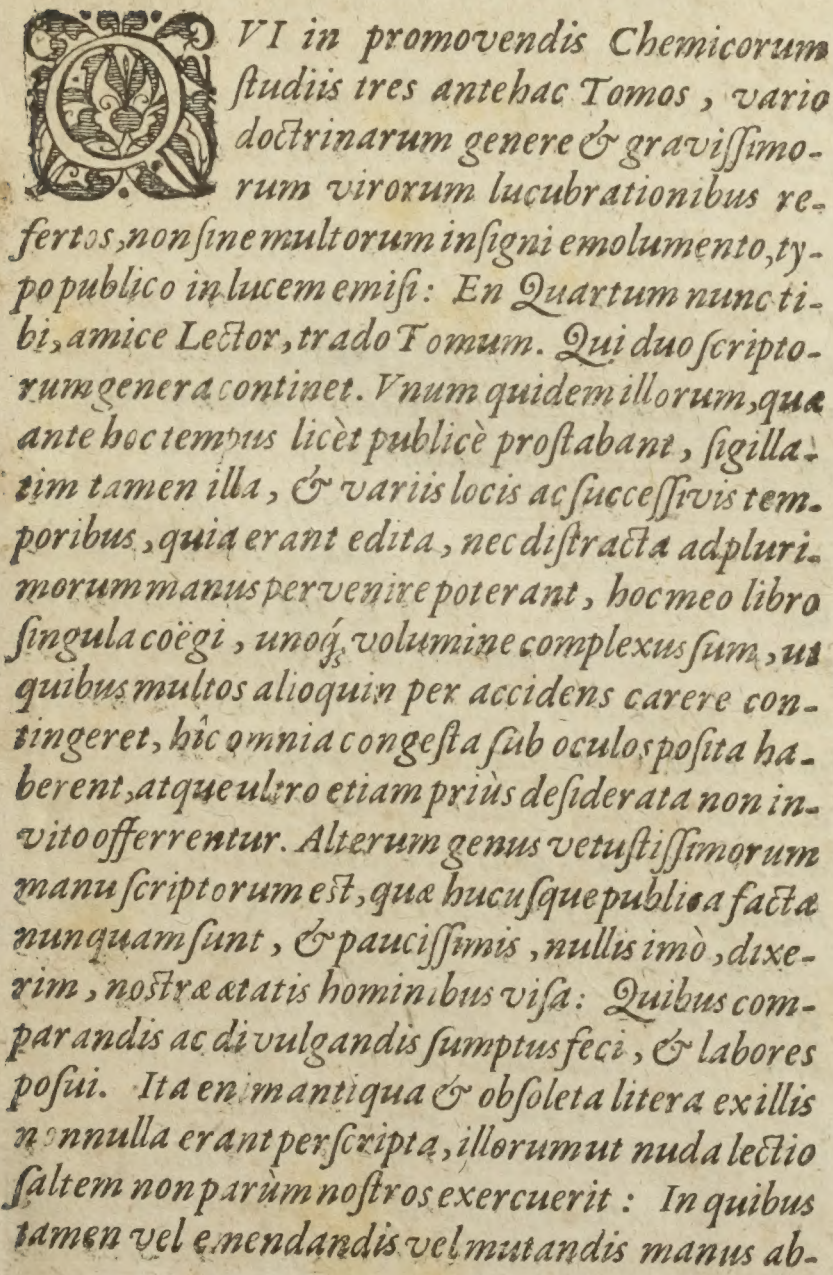 QVI in promovendis Chemicorum
ſtudiis tres antehac Tomos, vario
doctrinarum genere & graviſſimo-
rum virorum lucubrationibus re-
fertos, non ſine multorum inſigni emolumento, ty-
po publico in lucem emiſi: En Quartum nunc ti-
bi, amice Lector, trado Tomum. Qui duo ſcripto-
rum genera continet. Vnum quidem illorum, quæ
ante hoc tempus licèt publicè proſtabant, ſigilla-
tim tamen illa, & variis locis ac ſucceſſivis tem-
poribus, quia erant edita, nec diſtracta ad pluri-
morum manus pervenire poterant, hoc meo libro
ſingula coëgi, unoq́; volumine complexus ſum, ut
quibus multos alioquin per accidens carere con-
tingeret, hîc omnia congeſta ſub oculos poſita ha-
berent, atque ultro etiam priùs deſiderata non in-
vito offerrentur. Alterum genus vetuſtiſſimorum
manu ſcriptorum eſt, quæ hucuſque publica facta
nunquam ſunt, & pauciſſimis, nullis imò, dixe-
rim, noſtræ ætatis hominibus viſa: Quibus com-
parandis ac divulgandis ſumptus feci, & labores
poſui. Ita enim antiqua & obſoleta litera ex illis
nonnulla erant perſcripta, illorum ut nuda lectio
ſaltem non parùm noſtros exercuerit: In quibus
tamen vel emendandis vel mutandis manus ab-